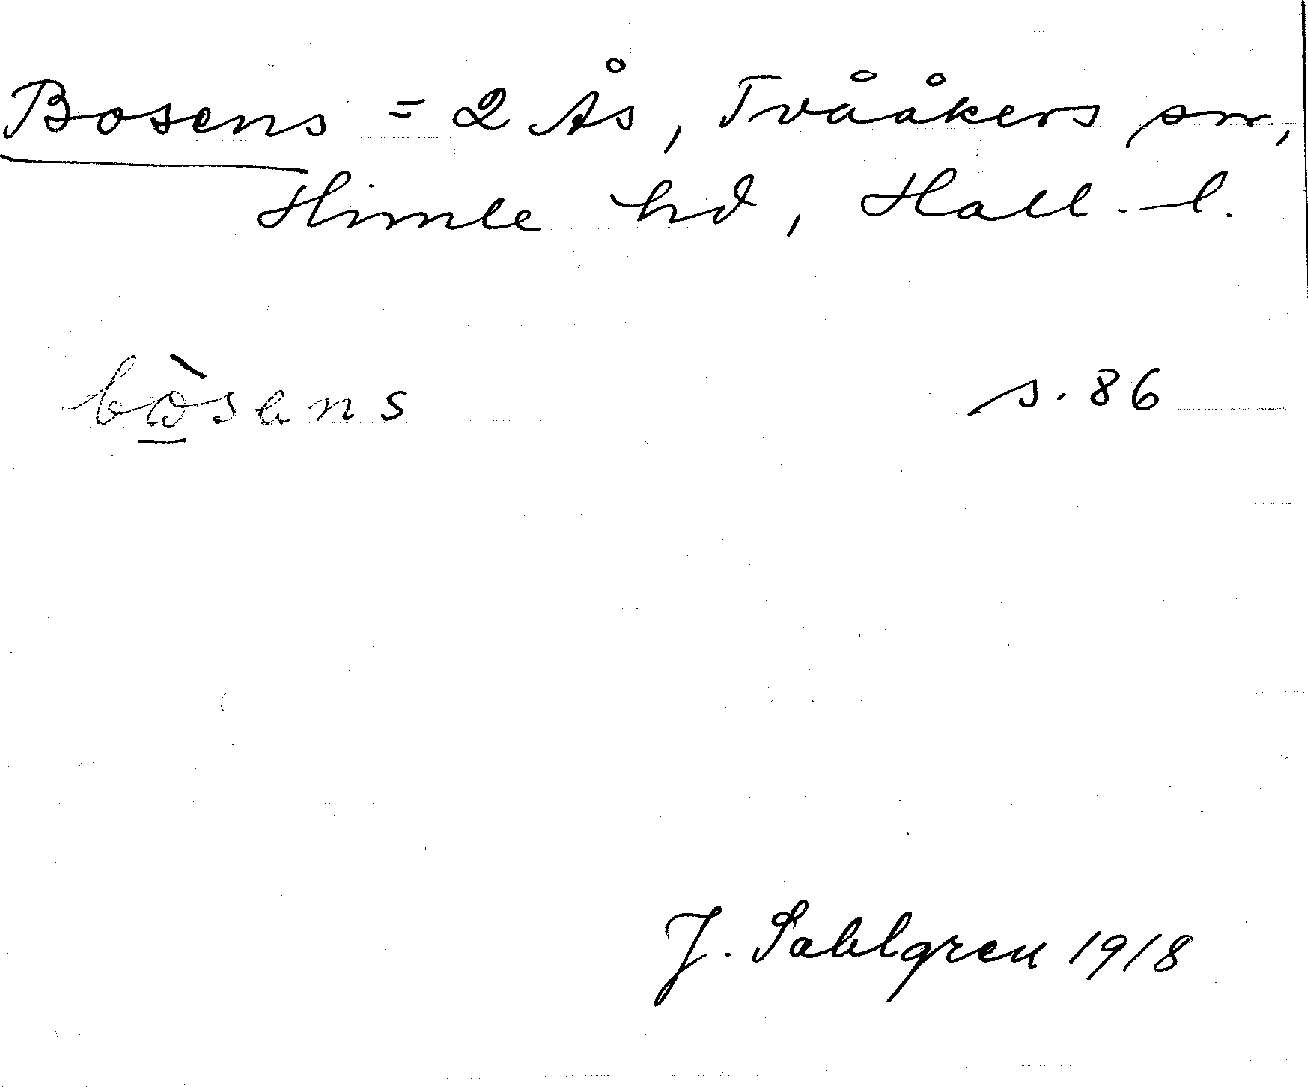 Bosens = 2 Ås, Tvååkers sn,
Himle hd, Hall. l.
bòsens s. 86
J. Sahlgren 1918